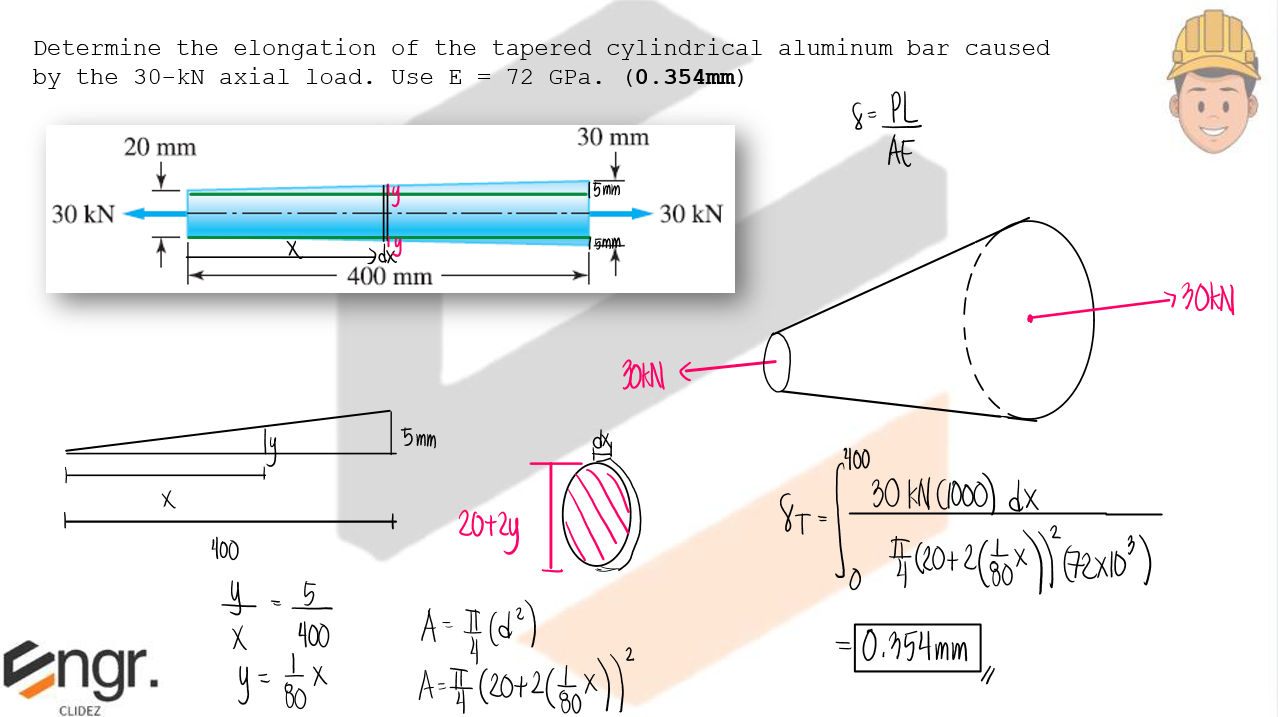 Determine the elongation of the tapered cylindrical aluminum bar caused
by the 30-kN axial load. Use E = 72 GPa. (0.354mm)
δ = PL / AE
20 mm
30 mm
5mm
y
30 kN
30 kN
y
5mm
x
dx
400 mm
30kN
30kN
y
5mm
x
400
dx
20+2y
y/x = 5/400
y = 1/80 x
A = π/4 (d²)
A = π/4 (20+2(1/80 x))²
δT = ∫₀⁴⁰⁰ 30 KN(1000) dx / π/4 (20+2(1/80 x))² (72x10³)
= 0.354mm
Engr.
CLIDEZ